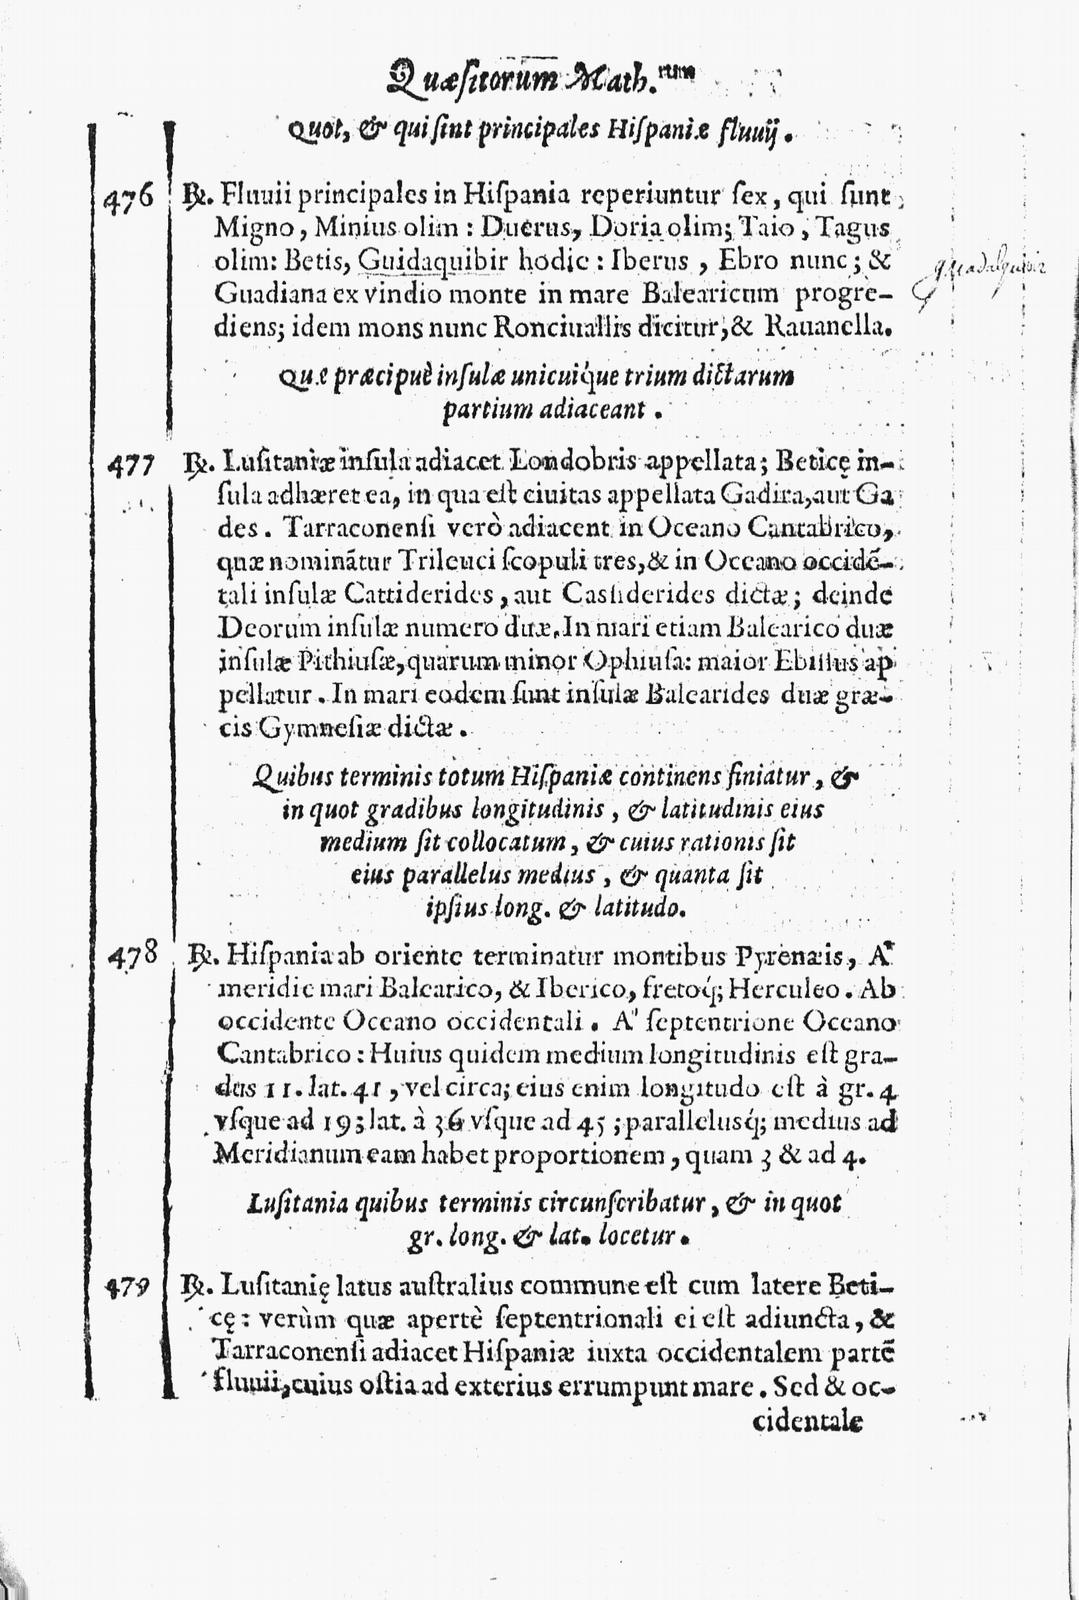 Quæſitorum Math.rum
Quot, & qui ſint principales Hiſpaniæ fluuij.
476 ℞. Fluuii principales in Hiſpania reperiuntur ſex, qui ſunt
Migno, Minius olim: Duerus, Doria olim; Taio, Tagus
olim: Betis, Guidaquibir hodie: Iberus, Ebro nunc; &
Guadalquibir
Guadiana ex vindio monte in mare Balearicum progre-
diens; idem mons nunc Ronciuallis dicitur, & Rauanella.
Quæ præcipuè inſulæ unicuiq́ue trium dictarum
partium adiaceant.
477 ℞. Luſitaniæ inſula adiacet Londobris appellata; Beticę in-
ſula adhæret ea, in qua eſt ciuitas appellata Gadira, aut Ga
des. Tarraconenſi verò adiacent in Oceano Cantabrico,
quæ nominātur Trileuci ſcopuli tres, & in Oceano occidē-
tali inſulæ Cattiderides, aut Casſiderides dictæ; deinde
Deorum inſulæ numero duæ. In mari etiam Balearico duæ
inſulæ Pithiuſæ, quarum minor Ophiuſa: maior Ebiſſus ap
pellatur. In mari eodem ſunt inſulæ Balearides duæ græ-
cis Gymneſiæ dictæ.
Quibus terminis totum Hiſpaniæ continens finiatur, &
in quot gradibus longitudinis, & latitudinis eius
medium ſit collocatum, & cuius rationis ſit
eius parallelus medius, & quanta ſit
ipſius long. & latitudo.
478 ℞. Hiſpania ab oriente terminatur montibus Pyrenæis, A'
meridie mari Balearico, & Iberico, fretoq́; Herculeo. Ab
occidente Oceano occidentali. A' ſeptentrione Oceano
Cantabrico: Huius quidem medium longitudinis eſt gra-
dus 11. lat. 41, vel circa; eius enim longitudo eſt à gr. 4
vſque ad 19; lat. à 36 vſque ad 45; parallelusq́; medius ad
Meridianum eam habet proportionem, quam 3 & ad 4.
Luſitania quibus terminis circunſcribatur, & in quot
gr. long. & lat. locetur.
479 ℞. Luſitanię latus auſtralius commune eſt cum latere Beti-
cę: verùm quæ apertè ſeptentrionali ei eſt adiuncta, &
Tarraconenſi adiacet Hiſpaniæ iuxta occidentalem partē
fluuii, cuius oſtia ad exterius errumpunt mare. Sed & oc-
cidentale